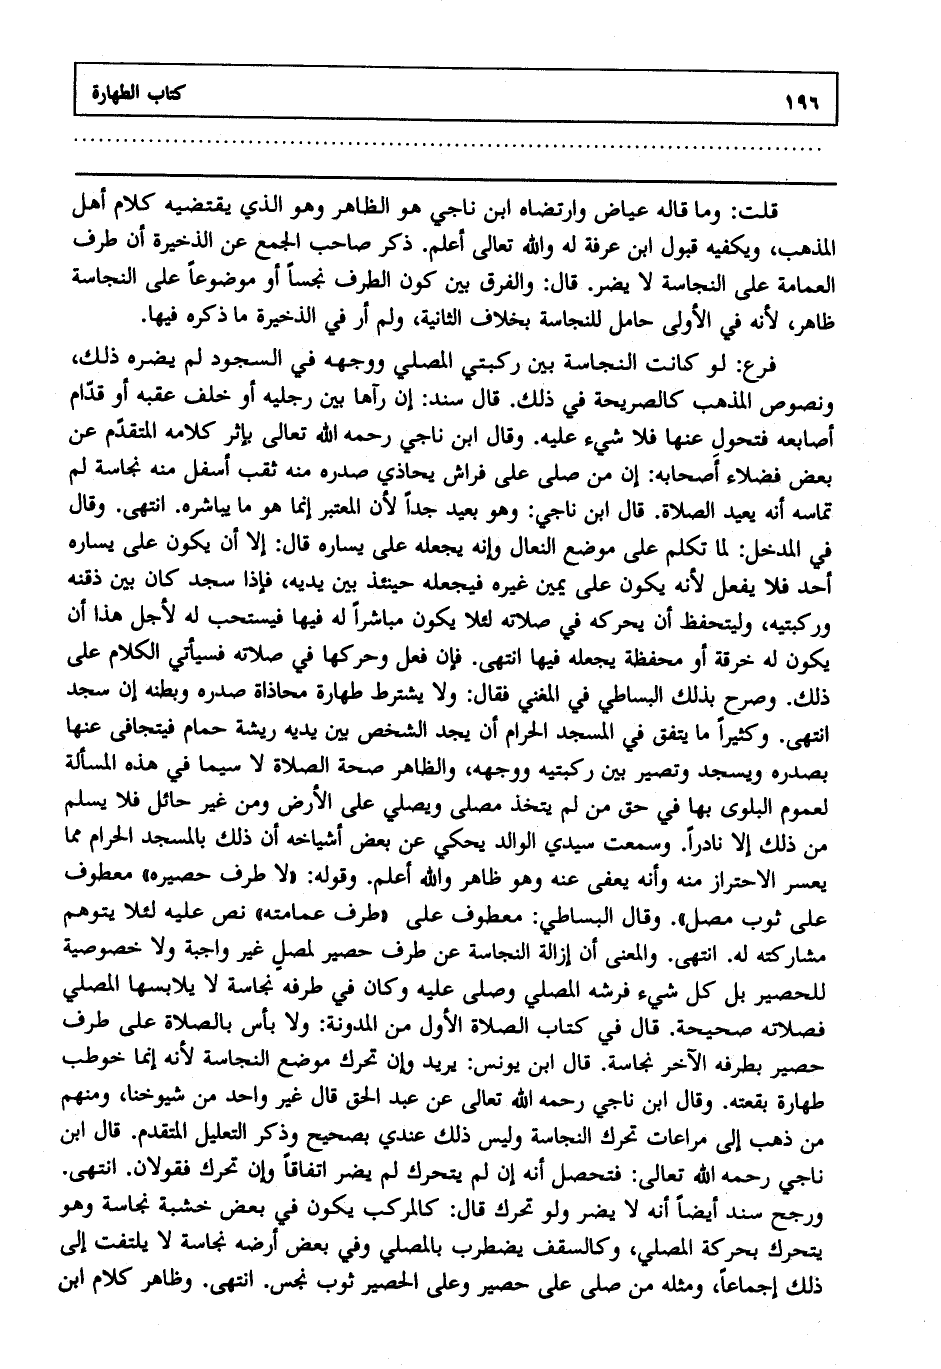 ١٩٦
كتاب الطهارة
قلت: وما قاله عياض وارتضاه ابن ناجي هو الظاهر وهو الذي يقتضيه كلام أهل
المذهب، ويكفيه قبول ابن عرفة له والله تعالى أعلم. ذكر صاحب الجمع عن الذخيرة أن طرف
العمامة على النجاسة لا يضر. قال: والفرق بين كون الطرف نجساً أو موضوعاً على النجاسة
ظاهر، لأنه في الأولى حامل للنجاسة بخلاف الثانية، ولم أر في الذخيرة ما ذكره فيها.
فرع: لو كانت النجاسة بين ركبتي المصلي ووجهه في السجود لم يضره ذلك،
ونصوص المذهب كالصريحة في ذلك. قال سند: إن رآها بين رجليه أو خلف عقبه أو قدّام
أصابعه فتحول عنها فلا شيء عليه. وقال ابن ناجي رحمه الله تعالى بإثر كلامه المتقدّم عن
بعض فضلاء أصحابه: إن من صلى على فراش يحاذي صدره منه ثقب أسفل منه نجاسة لم
تماسه أنه يعيد الصلاة. قال ابن ناجي: وهو بعيد جداً لأن المعتبر إنما هو ما يباشره. انتهى. وقال
في المدخل: لما تكلم على موضع النعال وإنه يجعله على يساره قال: إلا أن يكون على يساره
أحد فلا يفعل لأنه يكون على يمين غيره فيجعله حينئذ بين يديه، فإذا سجد كان بين ذقنه
وركبتيه، وليتحفظ أن يحركه في صلاته لئلا يكون مباشراً له فيها فيستحب له لأجل هذا أن
يكون له خرقة أو محفظة يجعله فيها انتهى. فإن فعل وحركها في صلاته فسيأتي الكلام على
ذلك. وصرح بذلك البساطي في المغني فقال: ولا يشترط طهارة محاذاة صدره وبطنه إن سجد
انتهى. وكثيراً ما يتفق في المسجد الحرام أن يجد الشخص بين يديه ريشة حمام فيتجافى عنها
بصدره ويسجد وتصير بين ركبتيه ووجهه، والظاهر صحة الصلاة لا سيما في هذه المسألة
لعموم البلوى بها في حق من لم يتخذ مصلى ويصلي على الأرض ومن غير حائل فلا يسلم
من ذلك إلا نادراً. وسمعت سيدي الوالد يحكي عن بعض أشياخه أن ذلك بالمسجد الحرام مما
يعسر الاحتراز منه وأنه يعفى عنه وهو ظاهر والله أعلم. وقوله: «لا طرف حصيره» معطوف
على ثوب مصل». وقال البساطي: معطوف على «طرف عمامته» نص عليه لئلا يتوهم
مشاركته له. انتهى. والمعنى أن إزالة النجاسة عن طرف حصير لمصلٍ غير واجبة ولا خصوصية
للحصير بل كل شيء فرشه المصلي وصلى عليه وكان في طرفه نجاسة لا يلابسها المصلي
فصلاته صحيحة. قال في كتاب الصلاة الأول من المدونة: ولا بأس بالصلاة على طرف
حصير بطرفه الآخر نجاسة. قال ابن يونس: يريد وإن تحرك موضع النجاسة لأنه إنما خوطب
طهارة بقعته. وقال ابن ناجي رحمه الله تعالى عن عبد الحق قال غير واحد من شيوخنا، ومنهم
من ذهب إلى مراعات تحرك النجاسة وليس ذلك عندي بصحيح وذكر التعليل المتقدم. قال ابن
ناجي رحمه الله تعالى: فتحصل أنه إن لم يتحرك لم يضر اتفاقاً وإن تحرك فقولان. انتهى.
ورجح سند أيضاً أنه لا يضر ولو تحرك قال: كالمركب يكون في بعض خشبة نجاسة وهو
يتحرك بحركة المصلي، وكالسقف يضطرب بالمصلي وفي بعض أرضه نجاسة لا يلتفت إلى
ذلك إجماعاً، ومثله من صلى على حصير وعلى الحصير ثوب نجس. انتهى. وظاهر كلام ابن